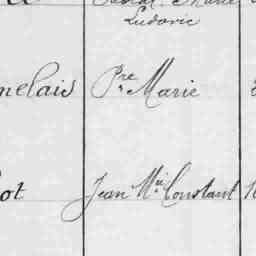 Ludovic
melais Pre Marie
ot Jean Mie Constant